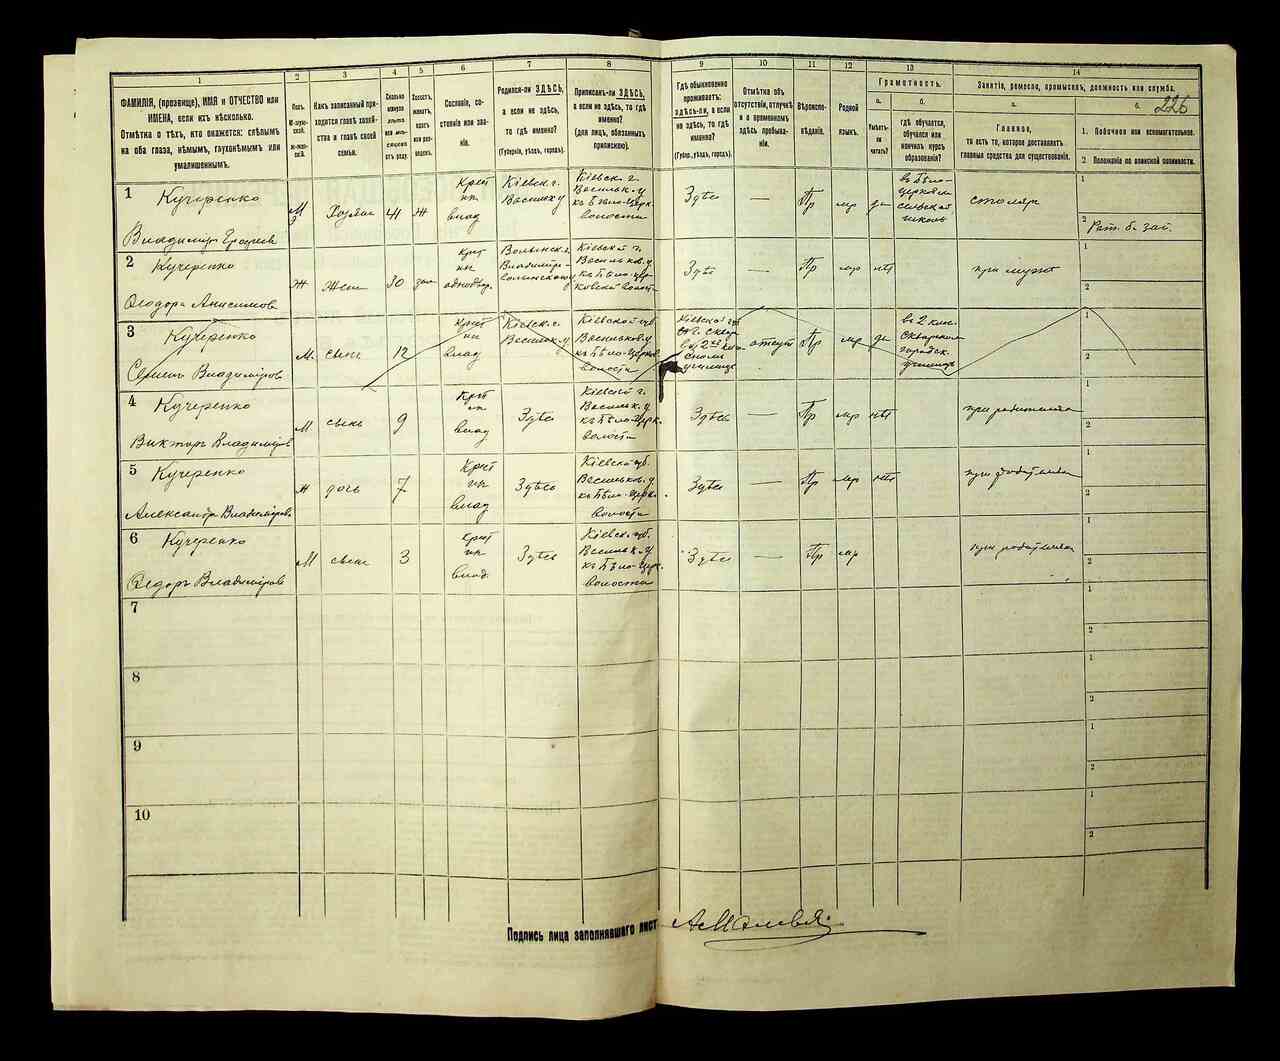 1
2
3
4
5
6
7
8
9
10
11
12
13
14
ФАМИЛІЯ, (прозвище), ИМЯ и ОТЧЕСТВО или
ИМЕНА, если ихъ нѣсколько.
Отмѣтка о тѣхъ, кто окажется: слѣпымъ
на оба глаза, нѣмымъ, глухонѣмымъ или
умалишеннымъ.
Полъ.
М-мужской.
Ж-женскій.
Какъ записанный приходится
главѣ хозяйства
и главѣ своей
семьи.
Сколько
минуло
лѣтъ
Холостъ,
женатъ,
вдовъ
или разведенъ.
Сословіе, состояніе
или званіе.
Родился-ли ЗДѢСЬ,
а если не здѣсь,
то гдѣ именно?
(Губернія, уѣздъ, городъ).
Приписанъ-ли ЗДѢСЬ,
а если не здѣсь, то гдѣ
именно?
(для лицъ, обязанныхъ
припискою).
Гдѣ обыкновенно
проживаетъ:
ЗДѢСЬ-ли, а если
не здѣсь, то гдѣ
именно?
(Губерн., уѣздъ, городъ).
Отмѣтка объ
отсутствіи, отлучкѣ
и о временномъ
здѣсь пребываніи.
Вѣроисповѣданіе.
Родной
языкъ.
Грамотность.
а.
Умѣетъ-ли
читать?
б.
гдѣ обучается,
обучался или
кончилъ курсъ
образованія?
Занятіе, ремесло, промыселъ, должность или служба.
226
а.
Главное,
то есть то, которое доставляетъ
главныя средства для существованія.
б.
1. Побочное или вспомогательное.
2 Положеніе по воинской повинности.
1
Кучеренко
Владиміръ
М
Хозяинъ
41
Ж
Крест
инъ
влад
Кіевск. г.
Васильк у
Кіевск. г.
Васильк. у
къ Бѣло-Церк.
волости
Здѣсь
—
Пр
мр
да
въ Бѣло-
церков
сельской
школѣ
столяр
1
2 Рат. б. зап.
2
Кучеренко
Ѳеодора Анисимова
Ж
Жена
30
зам
Крест
Волынск. г.
Владимір-
Волынскаго у
Кіевской г.
Васильков. у
къ Бѣло-Цер-
ковской волости
Здѣсь
—
Пр
мр
нѣт
при мужѣ
1
2
3
Кучеренко
Владиміров
М.
сынъ
12
Крест
инъ
влад
Кіевск. г.
Васильк. у
Кіевской губ
Васильков у
къ Бѣло-Церков
волости
Кіевской губ
въ 2
училищѣ
отсут
Пр
мр
да
въ 2 клас.
Сквирском
городск.
училищѣ
1
2
4
Кучеренко
Викторъ Владиміров
М
сынъ
9
Крест
инъ
влад
Здѣсь
Кіевской г.
Васильк. у
къ Бѣло-Церк.
волости
Здѣсь
—
Пр
мр
нѣт
при родителяхъ
1
2
5
Кучеренко
Александра Владимірова
Ж
дочь
7
Крест
инъ
влад
Здѣсь
Кіевской губ.
Васильков. у
къ Бѣло-Церк.
волости
Здѣсь
—
Пр
мр
нѣт
при родителяхъ
1
2
6
Кучеренко
Ѳедоръ Владиміров
М
сынъ
3
Крест
инъ
влад.
Здѣсь
Кіевск. губ.
Васильк. у
къ Бѣло-Церк.
волости
Здѣсь
—
Пр
мр
при родителяхъ
1
2
7
1
2
8
1
2
9
1
2
10
1
2
Подпись лица заполнявшаго лист